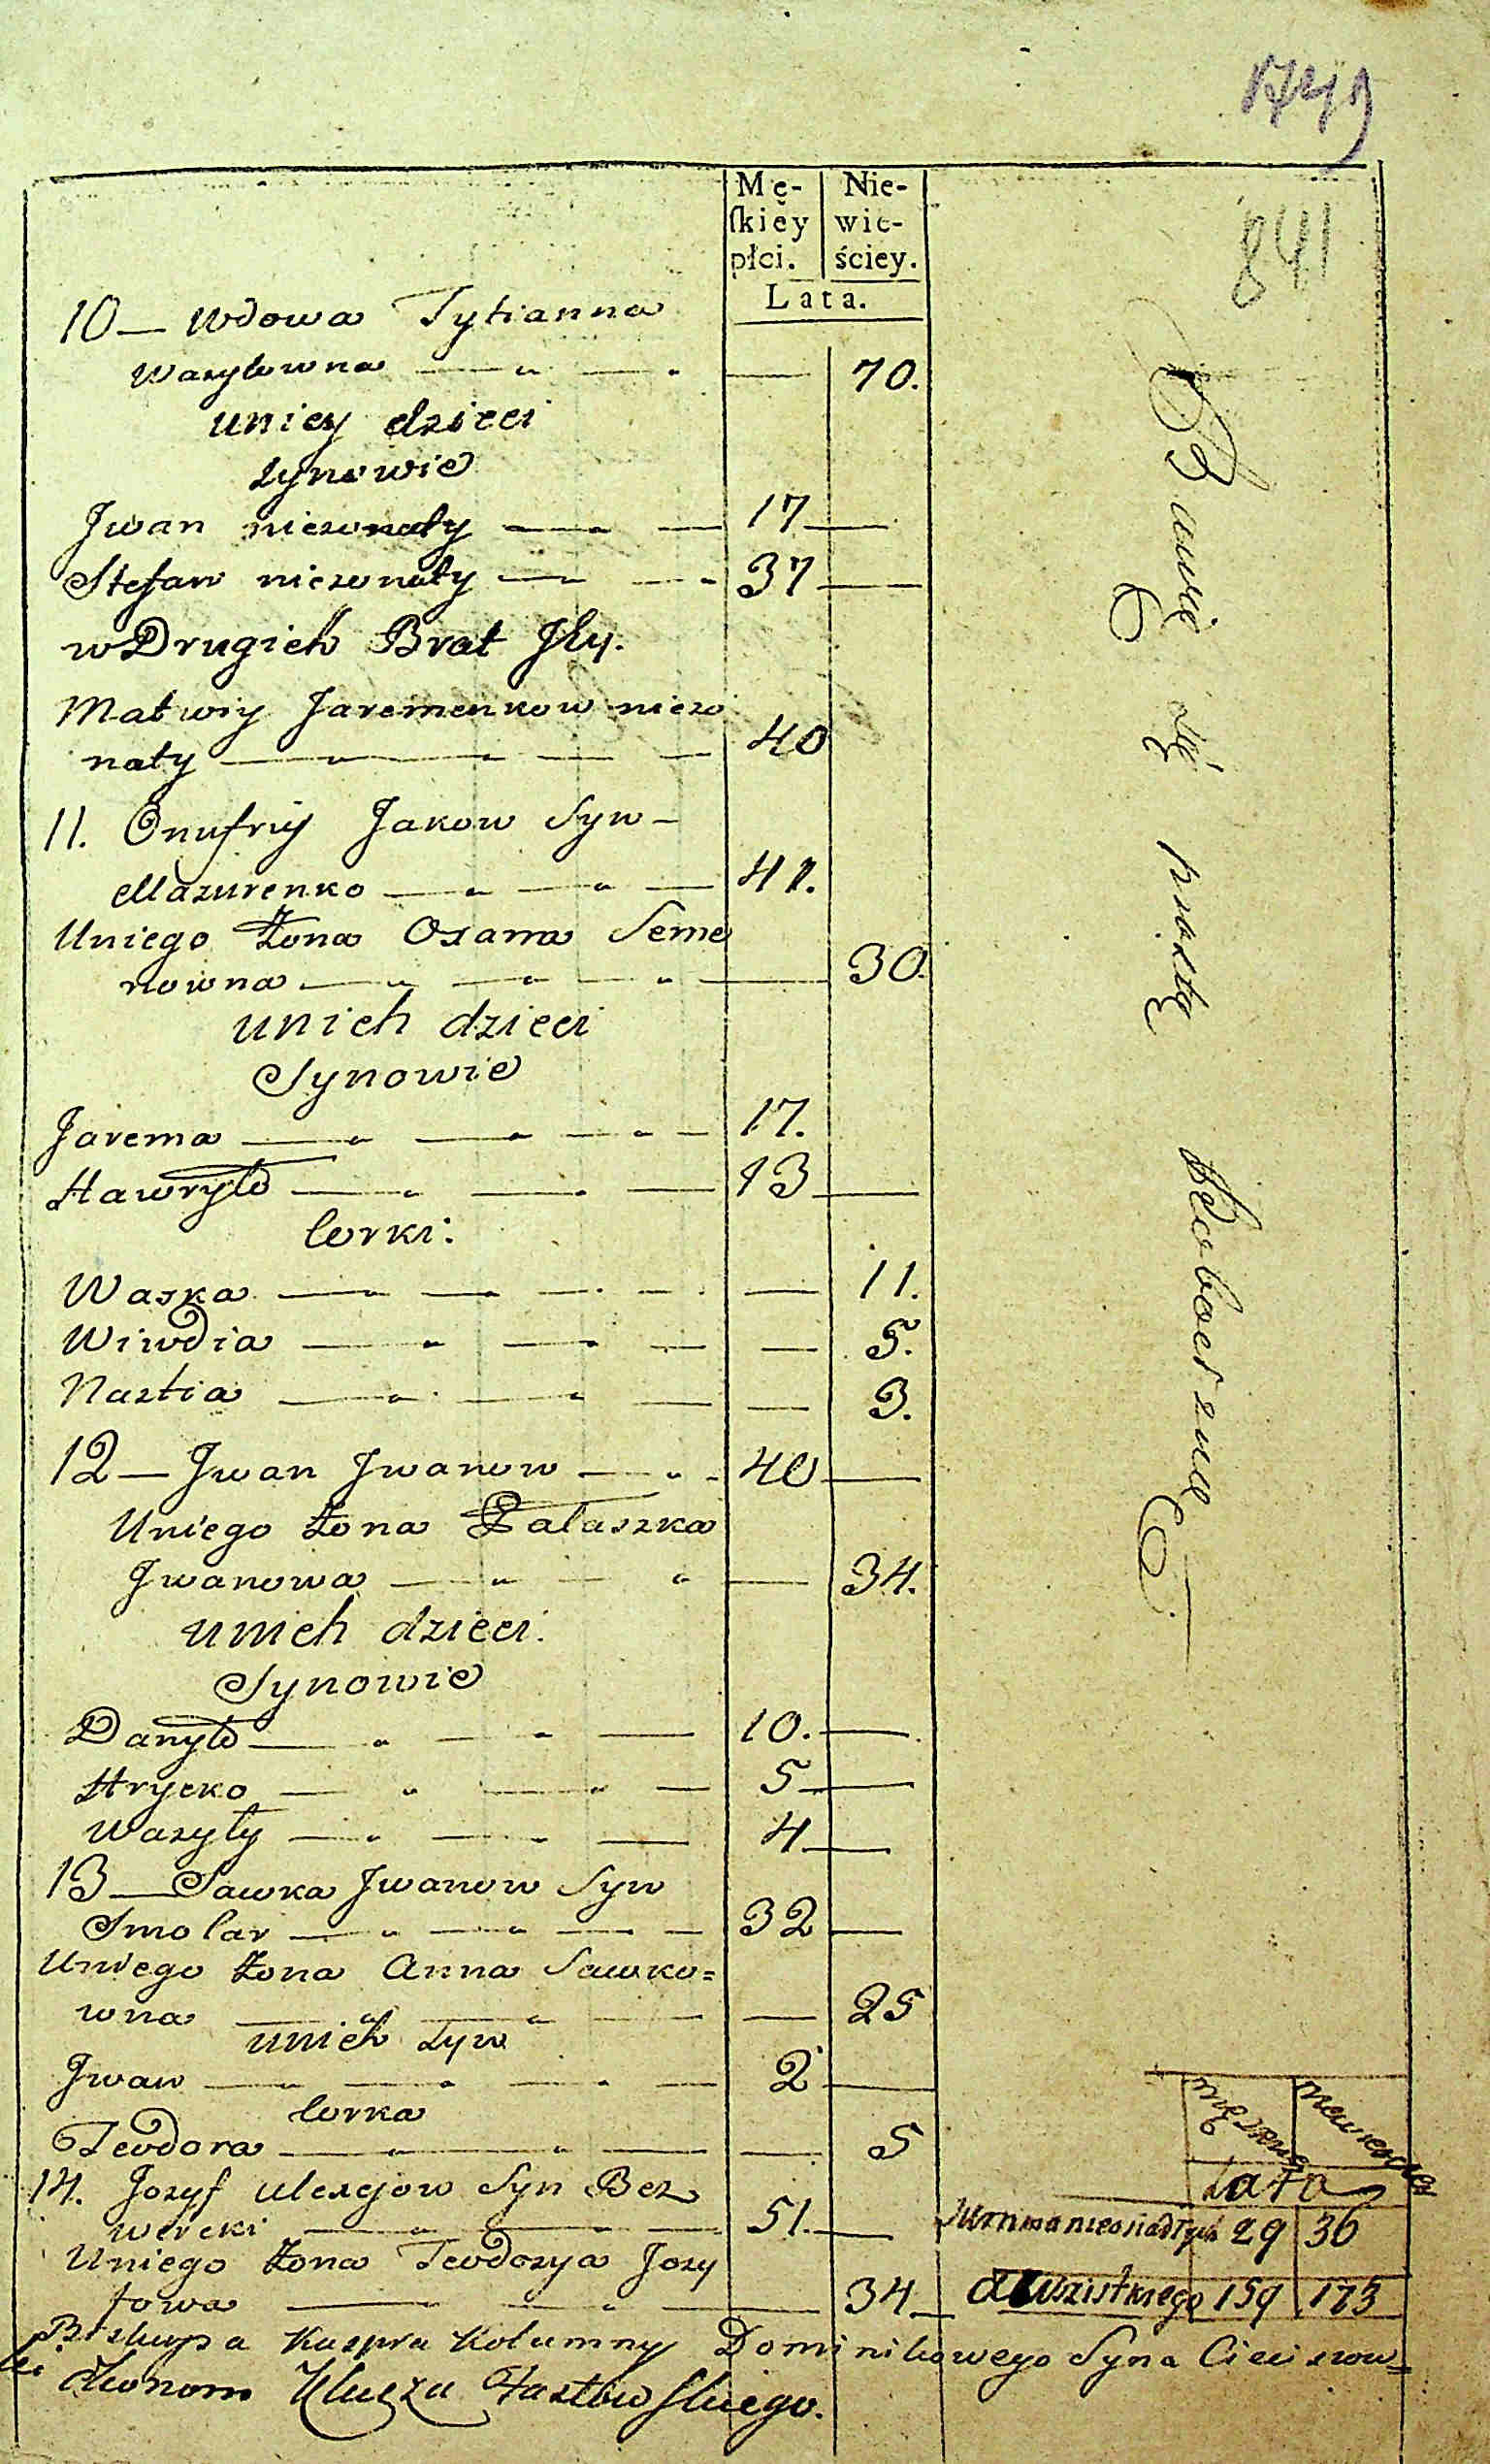 841
Mę- Nie-
skiey wie-
płci. ściey.
Lata.
10 — Wdowa Tytianna
Wasylowna — 70.
uniey dzieci
synowie
Jwan niezonaty — 17 —
Stefan niezonaty — 37 —
w Drugich Brat Jły.
Matwiy Jaremenkow niezo
naty — 40
11. Onufriy Jakow Syn —
Mazurenko — 41.
Uniego Żona Oxanna Seme
nowna — 30.
unich dzieci
Synowie
Jarema — 17.
Hawryło — 13 —
Corki:
Waska — 11.
Wiwdia — 5.
Nastia — 3.
12 — Jwan Jwanow — 40 —
Uniego Żona Pałaszka
Jwanowa — 34.
unich dzieci.
Synowie
Danyło — 10. —
Hrycko — 5 —
Wasyły — 4 —
13 — Sawka Jwanow Syn
Smolar — 32 —
Uniego Żona Anna Sawko=
wna — 25
unich syn
Jwan — 2 —
Corka
Teodora — 5
14. Jozyf Alexejow Syn Bez
wercki — 51. —
Uniego Żona Teodozya Jozy
fowa — 34
Lata
29 36
159 175
Biskupa Kaspra Kolumny Dominikowego Syna Cieciszow=
Ekonom Klucza Fastowskiego.